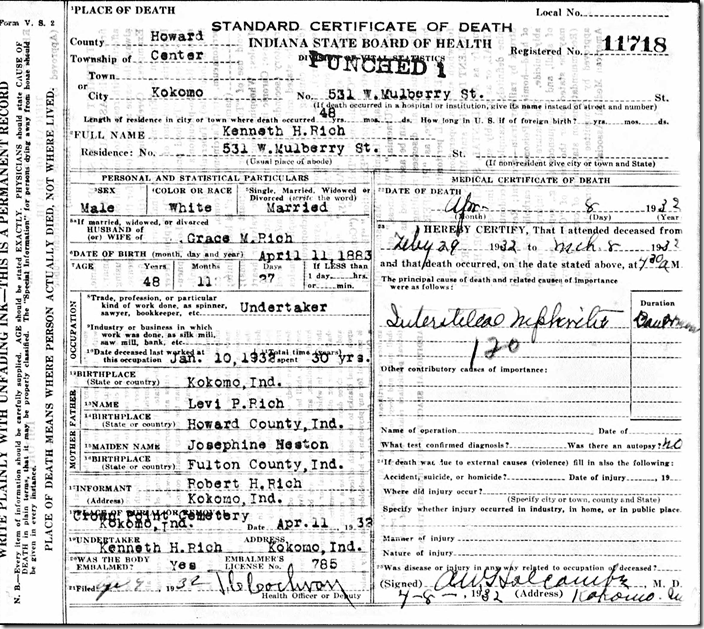 Form V. S. 2
WRITE PLAINLY WITH UNFADING INK—THIS IS A PERMANENT RECORD
N. B.—Every item of information should be carefully supplied. AGE should be stated EXACTLY. PHYSICIANS should state CAUSE OF
DEATH in plain terms, that it may be properly classified. The "Special Information" for persons dying away from home should
be given in every instance.
PLACE OF DEATH MEANS WHERE PERSON ACTUALLY DIED, NOT WHERE LIVED.
1PLACE OF DEATH
Local No.
STANDARD CERTIFICATE OF DEATH
County Howard
INDIANA STATE BOARD OF HEALTH
Registered No. 11718
Township of Center
DIVISION OF VITAL STATISTICS
PUNCHED 1
Town
or
City Kokomo No. 531 W.Mulberry St. St.
(If death occurred in a hospital or institution, give its name instead of street and number)
Length of residence in city or town where death occurred 48 yrs. mos. ds. How long in U. S. if of foreign birth? yrs. mos. ds.
2FULL NAME Kenneth H.Rich
Residence: No. 531 W.Mulberry St. St.
(Usual place of abode) (If non-resident give city or town and State)
PERSONAL AND STATISTICAL PARTICULARS
3SEX Male
4COLOR OR RACE White
5Single, Married, Widowed or
Divorced (write the word)
Married
5aIf married, widowed, or divorced
HUSBAND of
(or) WIFE of Grace M.Rich
6DATE OF BIRTH (month, day and year) April 11,1883
7AGE Years Months Days If LESS than
1 day, hrs.
48 11 27 or min.
OCCUPATION
8Trade, profession, or particular
kind of work done, as spinner,
sawyer, bookkeeper, etc. Undertaker
9Industry or business in which
work was done, as silk mill,
saw mill, bank, etc.
10Date deceased last worked at
this occupation Jan. 10,1932
11Total time (years)
spent 30 yrs.
12BIRTHPLACE
(State or country) Kokomo,Ind.
FATHER
13NAME Levi P.Rich
14BIRTHPLACE
(State or country) Howard County,Ind.
MOTHER
15MAIDEN NAME Josephine Neston
16BIRTHPLACE
(State or country) Fulton County,Ind.
17INFORMANT Robert H.Rich
(Address) Kokomo,Ind.
Crown Point Cemetery
Kokomo,Ind. Date Apr.11 1932
19UNDERTAKER ADDRESS
Kenneth H.Rich Kokomo,Ind.
20WAS THE BODY
EMBALMED? Yes
EMBALMER'S
LICENSE No. 785
21Filed 1932
Health Officer or Deputy
MEDICAL CERTIFICATE OF DEATH
22DATE OF DEATH
Apr 8 1932
(Month) (Day) (Year
23 I HEREBY CERTIFY, That I attended deceased from
Feby 29 1932 to Mch 8 1932
and that death occurred, on the date stated above, at 7 30 A M.
The principal cause of death and related causes of importance
were as follows:
Duration
Interstitial Nephritis
120
Other contributory causes of importance:
Name of operation Date of
What test confirmed diagnosis? Was there an autopsy? no
24If death was due to external causes (violence) fill in also the following:
Accident, suicide, or homicide? Date of injury , 19
Where did injury occur?
(Specify city or town, county and State)
Specify whether injury occurred in industry, in home, or in public place.
Manner of injury
Nature of injury
25Was disease or injury in any way related to occupation of deceased?
(Signed) AW Holcombe, M. D.
4-8-, 1932 (Address) Kokomo